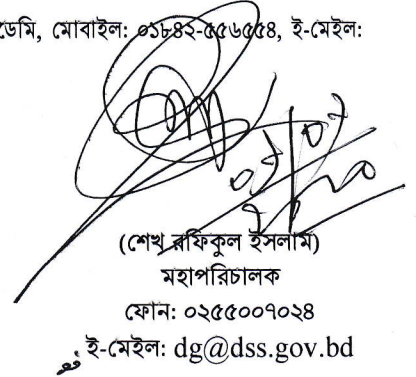 ডেমি, মোবাইল: ০১৮৪২-৫৫৬৫৫৪, ই-মেইল:
(শেখ রফিকুল ইসলাম)
মহাপরিচালক
ফোন: ০২৫৫০০৭০২৪
ই-মেইল: dg@dss.gov.bd